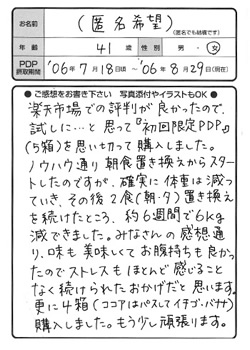 お名前 (匿名希望)
*匿名でも結構です
年齢 41才 性別 男・女
PDP摂取期間 '06年7月18日頃 ～ '06年8月29日(現在)
●ご感想をお書き下さい 写真添付やイラストもOK●
楽天市場での評判が良かったので、
試しに…と思って『初回限定PDP』
(5箱)を思い切って購入しました。
ノウハウ通り朝食置き換えからスター
トしたのですが、確実に体重は減っ
ていき、その後2食(朝・夕)置き換え
を続けたところ、約6週間で6kg
減できました。みなさんの感想通
り、味も美味しくてお腹持ちも良かっ
たのでストレスもほとんど感じるこ
となく続けられたおかげだと思います。
更に4箱(ココアはパスしてイチゴ・バナナ)
購入しました。もう少し頑張ります。